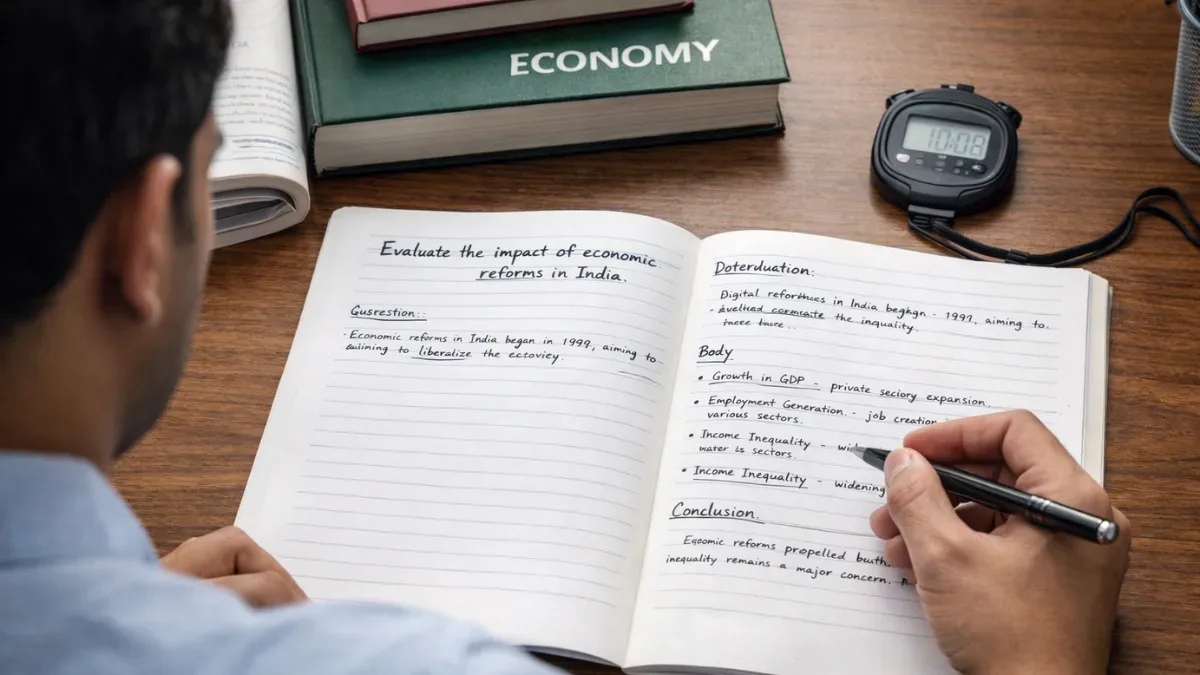 ECONOMY
10:08
Evaluate the impact of economic
reforms in India.
Gusrestion:-
- Economic reforms in India began in 1999, aiming to
to liberalize the
Doterduation:
Digital in India - 1997, aiming to
- the inquality.
Body
• Growth in GDP - private seciory expansion.
• Employment Generation. - job creation
various sectors.
• Income Inequality -
water is sectors.
• Income Inequality - widening
Conclusion.
reforms propelled
inequality remains a major concern.